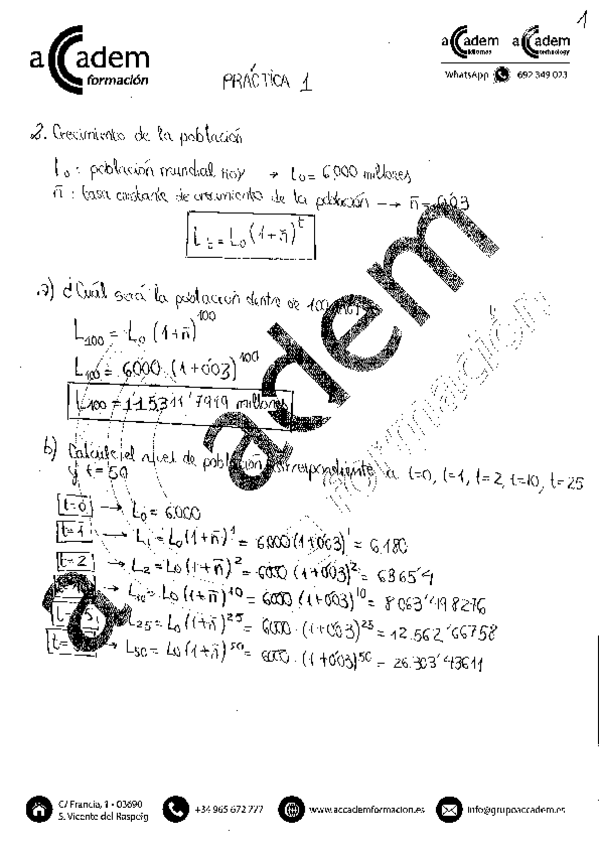 1
aCCadem
formación
aCCadem
idiomas
aCCadem
technology
WhatsApp 692 349 023
PRÁCTICA 1
2. Crecimiento de la población
L₀ : población mundial hoy → L₀ = 6000 millones
n̄ : tasa constante de crecimiento de la población → n̄ = 0'03
Lt = L₀ (1+n̄)^t
a) ¿Cuál será la población dentro de 100
L₁₀₀ = L₀ (1+n̄)^100
L₁₀₀ = 6000 · (1+0'03)^100
L₁₀₀ = 115311'7919 millones
b) Calcule el nivel de población correspondiente a t=0, t=1, t=2, t=10, t=25
y t=50
t=0 → L₀ = 6.000
t=1 → L₁ = L₀ (1+n̄)^1 = 6000 (1+0'03)^1 = 6.180
t=2 → L₂ = L₀ (1+n̄)^2 = 6000 (1+0'03)^2 = 6365'4
→ L₁₀ = L₀ (1+n̄)^10 = 6000 (1+0'03)^10 = 8063'498276
L₂₅ = L₀ (1+n̄)^25 = 6000 · (1+0'03)^25 = 12.562'66758
→ L₅₀ = L₀ (1+n̄)^50 = 6000 · (1+0'03)^50 = 26.303'43611
adem
formación
C/ Francia, 1 - 03690
S. Vicente del Raspeig
+34 965 672 777
www.accademformacion.es
info@grupoaccadem.es